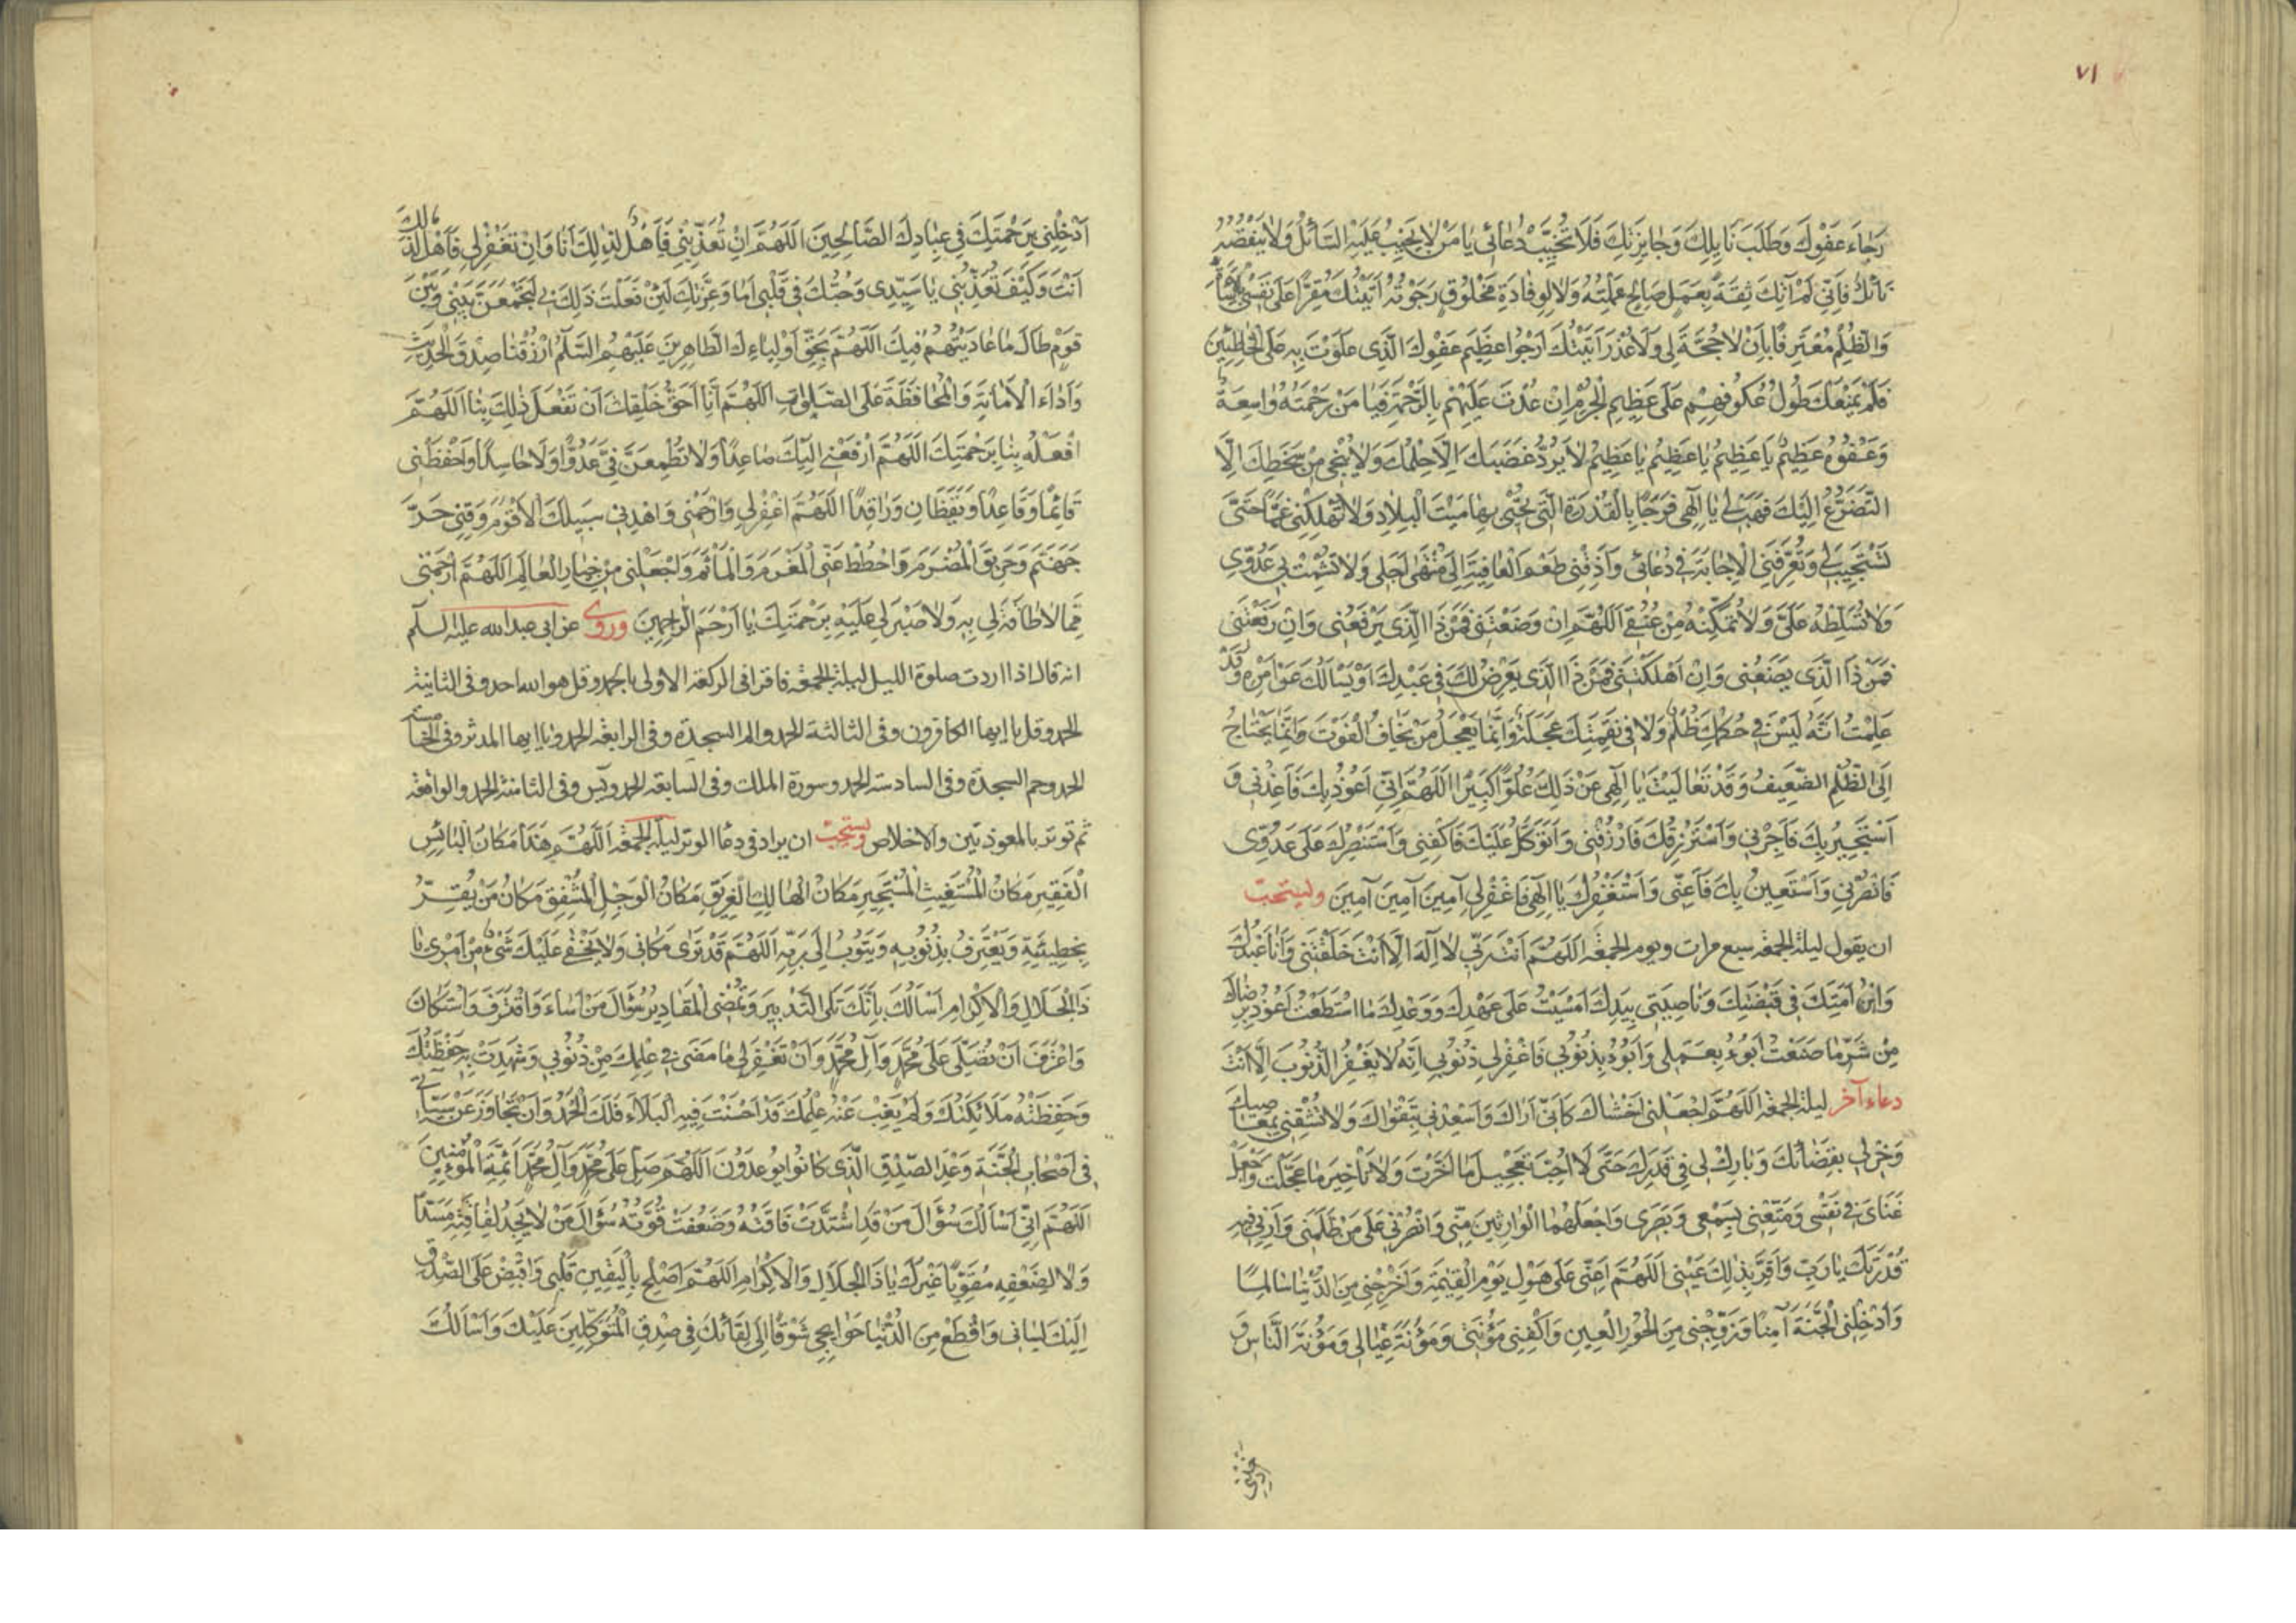 ٧١
رَجَاءَ عَفْوِكَ وَطَلَبَ نَايِلِكَ وَجَايِزَتِكَ فَلَا تُخَيِّبْ دُعَائِي يَا مَنْ لَا يَخِيبُ عَلَيْهِ السَّائِلُ وَلَا يَنْقُصُهُ
نَائِلٌ فَإِنِّي لَمْ آتِكَ ثِقَةً بِعَمَلٍ صَالِحٍ عَمِلْتُهُ وَلَا لِوِفَادَةِ مَخْلُوقٍ رَجَوْتُهُ أَتَيْتُكَ مُقِرًّا عَلَى نَفْسِي بِالْإِسَاءَةِ
وَالظُّلْمِ مُعْتَرِفًا بِأَنْ لَا حُجَّةَ لِي وَلَا عُذْرَ أَتَيْتُكَ أَرْجُوا عَظِيمَ عَفْوِكَ الَّذِي عَلَوْتَ بِهِ عَلَى الْخَاطِئِينَ
فَلَمْ يَمْنَعْكَ طُولُ عُكُوفِهِمْ عَلَى عَظِيمِ الْجُرْمِ إِنْ عُدْتَ عَلَيْهِمْ بِالرَّحْمَةِ فَيَا مَنْ رَحْمَتُهُ وَاسِعَةٌ
وَعَفْوُهُ عَظِيمٌ يَا عَظِيمُ يَا عَظِيمُ يَا عَظِيمُ لَا يَرُدُّ غَضَبَكَ إِلَّا حِلْمُكَ وَلَا يُنْجِي مِنْ سَخَطِكَ إِلَّا
التَّضَرُّعُ إِلَيْكَ فَهَبْ لِي يَا إِلَهِي فَرَجًا بِالْقُدْرَةِ الَّتِي تُحْيِي بِهَا مَيْتَ الْبِلَادِ وَلَا تُهْلِكْنِي غَمًّا حَتَّى
تَسْتَجِيبَ لِي وَتُعَرِّفَنِي الْإِجَابَةَ فِي دُعَائِي وَأَذِقْنِي طَعْمَ الْعَافِيَةِ إِلَى مُنْتَهَى أَجَلِي وَلَا تُشْمِتْ بِي عَدُوِّي
وَلَا تُسَلِّطْهُ عَلَيَّ وَلَا تُمَكِّنْهُ مِنْ عُنُقِي اَللّهُمَّ إِنْ وَضَعْتَنِي فَمَنْ ذَا الَّذِي يَرْفَعُنِي وَإِنْ رَفَعْتَنِي
فَمَنْ ذَا الَّذِي يَضَعُنِي وَإِنْ أَهْلَكْتَنِي فَمَنْ ذَا الَّذِي يَعْرِضُ لَكَ فِي عَبْدِكَ أَوْ يَسْأَلُكَ عَنْ أَمْرِهِ وَقَدْ
عَلِمْتُ أَنَّهُ لَيْسَ فِي حُكْمِكَ ظُلْمٌ وَلَا فِي نَقِمَتِكَ عَجَلَةٌ وَإِنَّمَا يَعْجَلُ مَنْ يَخَافُ الْفَوْتَ وَإِنَّمَا يَحْتَاجُ
إِلَى الظُّلْمِ الضَّعِيفُ وَقَدْ تَعَالَيْتَ يَا إِلَهِي عَنْ ذَلِكَ عُلُوًّا كَبِيرًا اَللّهُمَّ إِنِّي أَعُوذُ بِكَ فَأَعِذْنِي وَ
أَسْتَجِيرُ بِكَ فَأَجِرْنِي وَأَسْتَرْزِقُكَ فَارْزُقْنِي وَأَتَوَكَّلُ عَلَيْكَ فَاكْفِنِي وَأَسْتَنْصِرُكَ عَلَى عَدُوِّي
فَانْصُرْنِي وَأَسْتَعِينُ بِكَ فَأَعِنِّي وَأَسْتَغْفِرُكَ يَا إِلَهِي فَاغْفِرْ لِي آمِينَ آمِينَ آمِينَ ويستحب
ان يقول ليلة الجمعة سبع مرات ويوم الجمعة اَللّهُمَّ أَنْتَ رَبِّي لَا إِلَهَ إِلَّا أَنْتَ خَلَقْتَنِي وَأَنَا عَبْدُكَ
وَابْنُ أَمَتِكَ فِي قَبْضَتِكَ وَنَاصِيَتِي بِيَدِكَ أَمْسَيْتُ عَلَى عَهْدِكَ وَوَعْدِكَ مَا اسْتَطَعْتُ أَعُوذُ بِرِضَاكَ
مِنْ شَرِّ مَا صَنَعْتُ أَبُوءُ بِعَمَلِي وَأَبُوءُ بِذُنُوبِي فَاغْفِرْ لِي ذُنُوبِي إِنَّهُ لَا يَغْفِرُ الذُّنُوبَ إِلَّا أَنْتَ
دعاء آخر ليلة الجمعة اَللّهُمَّ اجْعَلْنِي أَخْشَاكَ كَأَنِّي أَرَاكَ وَأَسْعِدْنِي بِتَقْوَاكَ وَلَا تُشْقِنِي بِمَعَاصِيكَ
وَخِرْ لِي بِقَضَائِكَ وَبَارِكْ لِي فِي قَدَرِكَ حَتَّى لَا أُحِبَّ تَعْجِيلَ مَا أَخَّرْتَ وَلَا تَأْخِيرَ مَا عَجَّلْتَ وَاجْعَلْ
غِنَايَ فِي نَفْسِي وَمَتِّعْنِي بِسَمْعِي وَبَصَرِي وَاجْعَلْهُمَا الْوَارِثَيْنِ مِنِّي وَانْصُرْنِي عَلَى مَنْ ظَلَمَنِي وَأَرِنِي فِيهِ
قُدْرَتَكَ يَا رَبِّ وَأَقِرَّ بِذَلِكَ عَيْنِي اَللّهُمَّ أَعِنِّي عَلَى هَوْلِ يَوْمِ الْقِيمَةِ وَأَخْرِجْنِي مِنَ الدُّنْيَا سَالِمًا
وَأَدْخِلْنِي الْجَنَّةَ آمِنًا وَزَوِّجْنِي مِنَ الْحُورِ الْعِينِ وَاكْفِنِي مَؤُنَتِي وَمَؤُنَةَ عِيَالِي وَمَؤُنَةَ النَّاسِ وَ
أَدْخِلْنِي بِرَحْمَتِكَ فِي عِبَادِكَ الصَّالِحِينَ اَللّهُمَّ إِنْ تُعَذِّبْنِي فَأَهْلٌ لِذَلِكَ أَنَا وَإِنْ تَغْفِرْ لِي فَأَهْلٌ لِذَلِكَ
أَنْتَ وَكَيْفَ تُعَذِّبُنِي يَا سَيِّدِي وَحُبُّكَ فِي قَلْبِي أَمَا وَعِزَّتِكَ لَئِنْ فَعَلْتَ ذَلِكَ بِي لَتَجْمَعَنَّ بَيْنِي وَبَيْنَ
قَوْمٍ طَالَ مَا عَادَيْتُهُمْ فِيكَ اَللّهُمَّ بِحَقِّ أَوْلِيَاءِكَ الطَّاهِرِينَ عَلَيْهِمُ السَّلَمُ ارْزُقْنَا صِدْقَ الْحَدِيثِ
وَأَدَاءَ الْأَمَانَةِ وَالْمُحَافَظَةَ عَلَى الصَّلَوَاتِ اَللّهُمَّ أَنَا أَحَقُّ خَلْقِكَ أَنْ تَفْعَلَ ذَلِكَ بِنَا اَللّهُمَّ
افْعَلْهُ بِنَا بِرَحْمَتِكَ اَللّهُمَّ ارْفَعْنِي إِلَيْكَ صَاعِدًا وَلَا تُطْمِعَنَّ فِيَّ عَدُوًّا وَلَا حَاسِدًا وَاحْفَظْنِي
قَائِمًا وَقَاعِدًا وَيَقْظَانَ وَرَاقِدًا اَللّهُمَّ اغْفِرْ لِي وَارْحَمْنِي وَاهْدِنِي سَبِيلَكَ الْأَقْوَمَ وَقِنِي حَرَّ
جَهَنَّمَ وَحَرِيقَ الْمُضْرَمِ وَاحْطُطْ عَنِّي الْمَغْرَمَ وَالْمَأْثَمَ وَاجْعَلْنِي مِنْ خِيَارِ الْعَالَمِ اَللّهُمَّ ارْحَمْنِي
مِمَّا لَا طَاقَةَ لِي بِهِ وَلَا صَبْرَ لِي عَلَيْهِ بِرَحْمَتِكَ يَا أَرْحَمَ الرَّاحِمِينَ وروى عن ابى عبدالله عليه السلم
انه قال اذا اردت صلوة الليل ليلة الجمعة فاقرا فى الركعة الاولى بالحمد وقل هو الله احد وفى الثانية
الحمد وقل يا ايها الكافرون وفى الثالثة الحمد والم السجدة وفى الرابعة الحمد ويا ايها المدثر وفى الخامسة
الحمد وحم السجدة وفى السادسة الحمد وسورة الملك وفى السابعة الحمد ويس وفى الثامنة الحمد والواقعة
ثم توتر بالمعوذتين والاخلاص ويستحب ان يزاد فى دعا الوتر ليلة الجمعة اَللّهُمَّ هَذَا مَكَانُ الْبَائِسِ
الْفَقِيرِ مَكَانُ الْمُسْتَغِيثِ الْمُسْتَجِيرِ مَكَانُ الْهَالِكِ الْغَرِيقِ مَكَانُ الْوَجِلِ الْمُشْفِقِ مَكَانُ مَنْ يُقِرُّ
بِخَطِيئَتِهِ وَيَعْتَرِفُ بِذُنُوبِهِ وَيَتُوبُ إِلَى رَبِّهِ اَللّهُمَّ قَدْ تَرَى مَكَانِي وَلَا يَخْفَى عَلَيْكَ شَيْءٌ مِنْ أَمْرِي يَا
ذَا الْجَلَالِ وَالْإِكْرَامِ أَسْأَلُكَ بِأَنَّكَ تَلِي التَّدْبِيرَ وَتُمْضِي الْمَقَادِيرَ سُؤَالَ مَنْ أَسَاءَ وَاقْتَرَفَ وَاسْتَكَانَ
وَاعْتَرَفَ أَنْ تُصَلِّيَ عَلَى مُحَمَّدٍ وَآلِ مُحَمَّدٍ وَأَنْ تَغْفِرَ لِي مَا مَضَى فِي عِلْمِكَ مِنْ ذُنُوبِي وَشَهِدَتْ بِهِ حَفَظَتُكَ
وَحَفِظَتْهُ مَلَائِكَتُكَ وَلَمْ يَغِبْ عَنْهُ عِلْمُكَ قَدْ أَحْسَنْتَ فِيهِ الْبَلَاءَ فَلَكَ الْحَمْدُ وَأَنْ تَجَاوَزَ عَنْ سَيِّئَاتِي
فِي أَصْحَابِ الْجَنَّةِ وَعْدَ الصِّدْقِ الَّذِي كَانُوا يُوعَدُونَ اَللّهُمَّ صَلِّ عَلَى مُحَمَّدٍ وَآلِ مُحَمَّدٍ أَئِمَّةِ الْمُؤْمِنِينَ
اَللّهُمَّ إِنِّي أَسْأَلُكَ سُؤَالَ مَنْ قَدِ اشْتَدَّتْ فَاقَتُهُ وَضَعُفَتْ قُوَّتُهُ سُؤَالَ مَنْ لَا يَجِدُ لِفَاقَتِهِ مَسَدًّا
وَلَا لِضَعْفِهِ مُقَوِّيًا غَيْرَكَ يَا ذَا الْجَلَالِ وَالْإِكْرَامِ اَللّهُمَّ أَصْلِحْ بِالْيَقِينِ قَلْبِي وَاقْبِضْ عَلَى الصِّدْقِ
إِلَيْكَ لِسَانِي وَاقْطَعْ مِنَ الدُّنْيَا حَوَايِجِي شَوْقًا إِلَى لِقَائِكَ فِي صِدْقِ الْمُتَوَكِّلِينَ عَلَيْكَ وَأَسْأَلُكَ